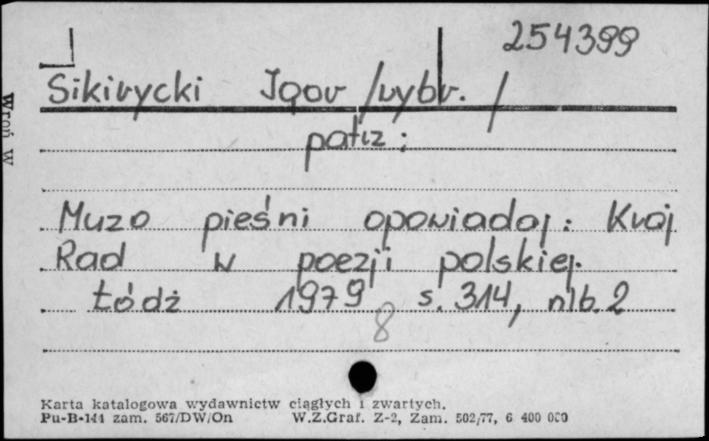 254399
Sikirycki Igor /wybr. /
patrz :
Muzo pieśni opowiadaj: Kraj
Rad w poezji polskiej.
Łódź 1979 s. 314, nlb. 2
8
Karta katalogowa wydawnictw ciągłych i zwartych.
Pu-B-141 zam. 567/DW/On W.Z.Graf. Z-2, Zam. 502/77, 6 400 000
Wroń W